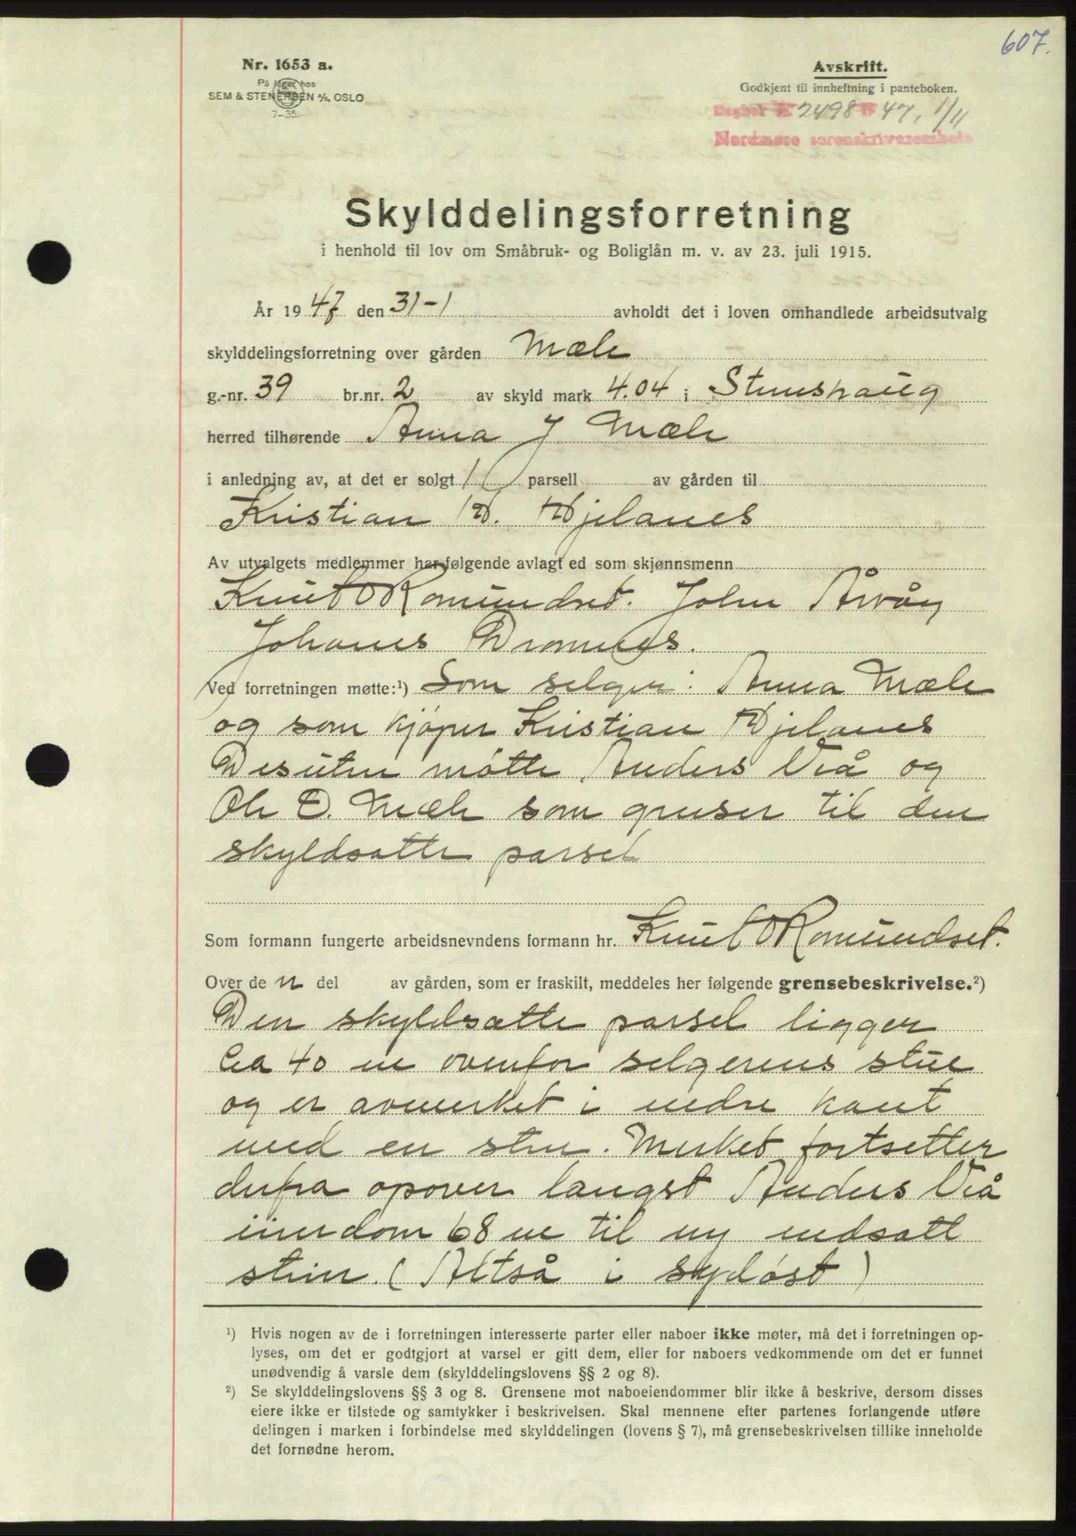 607.
Nr. 1653 a.
På lager hos
SEM & STENERSEN A/S, OSLO
7-35
Avskrift.
Godkjent til innheftning i panteboken.
Dagbok 2498 47, 1/11
Nordmøre sorenskriverembete
Skylddelingsforretning
i henhold til lov om Småbruk- og Boliglån m. v. av 23. juli 1915.
År 1947 den 31-1 avholdt det i loven omhandlede arbeidsutvalg
skylddelingsforretning over gården Mæle
g.-nr. 39 br.nr. 2 av skyld mark 4.04 i Stemshaug
herred tilhørende Anna J Mæle
i anledning av, at det er solgt 1 parsell av gården til
Kristian Hjelanes
Av utvalgets medlemmer har følgende avlagt ed som skjønnsmenn
Knut O Romundset. John Årvåg
Johanes Dromnes.
Ved forretningen møtte:¹) Som selger: Anna Mæle
og som kjøper Kristian Hjelanes
Desuten møtte Anders Viå og
Ole E. Mæle som grenser til den
skyldsatte parsel
Som formann fungerte arbeidsnevndens formann hr. Knut O Romundset.
Over de n del av gården, som er fraskilt, meddeles her følgende grensebeskrivelse.²)
Den skyldsatte parsel ligger
Ca 40 m ovenfor selgerens stue
og er avmerket i nedre kant
med en sten. Merket fortsetter
derfra opover langst Anders Viå
eiendom 68 m til ny nedsatt
stein. (Altså i sydøst)
¹) Hvis nogen av de i forretningen interesserte parter eller naboer ikke møter, må det i forretningen op-
lyses, om det er godtgjort at varsel er gitt dem, eller for naboers vedkommende om det er funnet
unødvendig å varsle dem (skylddelingslovens §§ 2 og 8).
²) Se skylddelingslovens §§ 3 og 8. Grensene mot naboeiendommer blir ikke å beskrive, dersom disses
eiere ikke er tilstede og samtykker i beskrivelsen. Skal mennene efter partenes forlangende utføre
delingen i marken i forbindelse med skylddelingen (lovens § 7), må grensebeskrivelsen tillike inneholde
det fornødne herom.